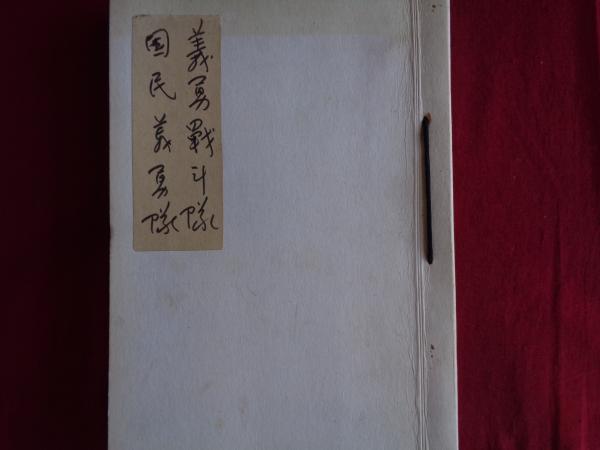 義勇戦斗隊
国民義勇隊